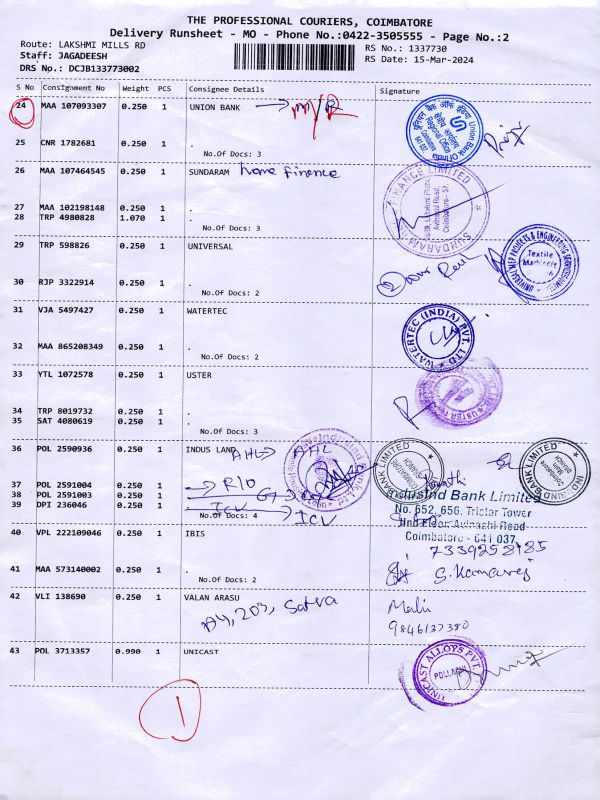 THE PROFESSIONAL COURIERS, COIMBATORE
Delivery Runsheet - MO - Phone No.:0422-3505555 - Page No.:2
Route: LAKSHMI MILLS RD
Staff: JAGADEESH
DRS No.: DCJB133773002
RS No.: 1337730
RS Date: 15-Mar-2024
S No Consignment No Weight PCS Consignee Details Signature
24 MAA 107093307 0.250 1 UNION BANK → M/R M/R
25 CNR 1782681 0.250 1 .
No.Of Docs: 3
26 MAA 107464545 0.250 1 SUNDARAM Home Finance
27 MAA 102198148 0.250 1 .
28 TRP 4980828 1.070 1 .
No.Of Docs: 3
29 TRP 598826 0.250 1 UNIVERSAL
Textile
30 RJP 3322914 0.250 1 .
No.Of Docs: 2
31 VJA 5497427 0.250 1 WATERTEC
WATERTEC (INDIA) PVT. LTD
32 MAA 865208349 0.250 1 .
No.Of Docs: 2
33 YTL 1072578 0.250 1 USTER
34 TRP 8019732 0.250 1 .
35 SAT 4080619 0.250 1 .
No.Of Docs: 3
36 POL 2590936 0.250 1 INDUS LAND AHL → AHL
37 POL 2591004 0.250 1 . → R/O
38 POL 2591003 0.250 1 .
39 DPI 236046 0.250 1 . ICU → ICU
No.Of Docs: 4
IndusInd Bank Limited
No. 652, 656, Tristar Tower
IInd Floor Avinashi Road
Coimbatore - 641 037
40 VPL 222109046 0.250 1 IBIS
7339258185
41 MAA 573140002 0.250 1 .
No.Of Docs: 2
S. Kamaraj
42 VLI 138690 0.250 1 VALAN ARASU
A4, 203, Satva
Malu
9846137380
43 POL 3713357 0.990 1 UNICAST
UNICAST ALLOYS PVT.
POLLACHI
1